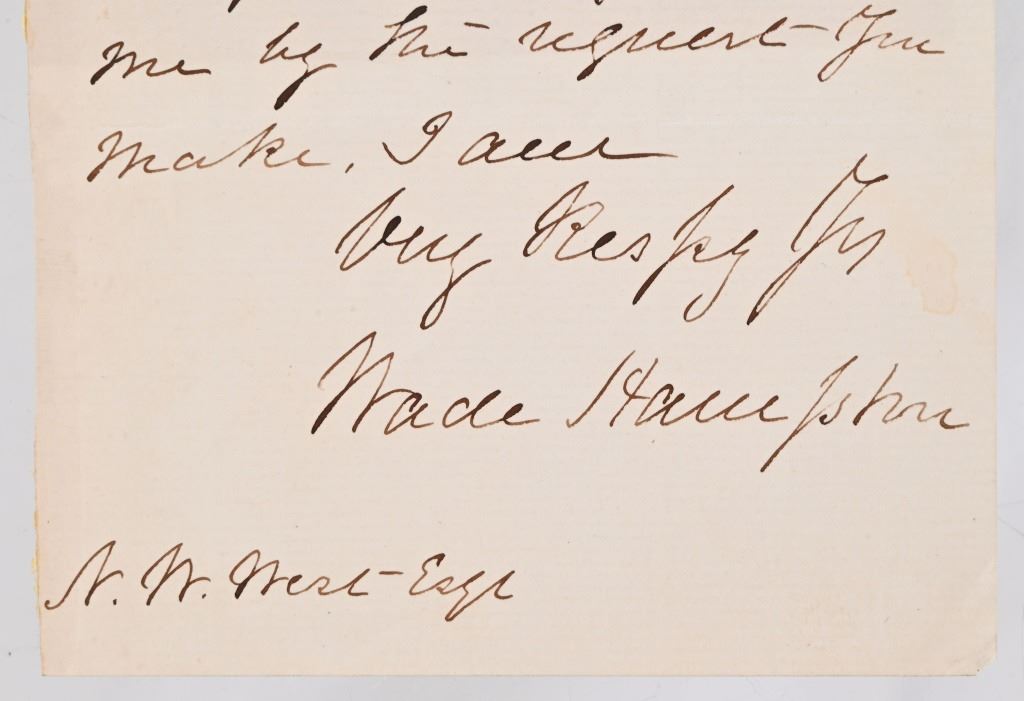 me by the request you
make, I am
Very Respy Yrs
Wade Hampton
N. W. West Esqr